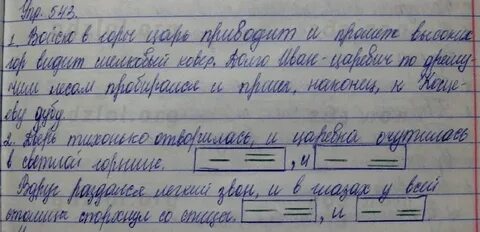 Упр. 543.
1. Войско в горы царь приводит и промеж высоких
гор видит шелковый ковер. Долго Иван-царевич по дрему-
чим лесам пробирался и пришел, наконец, к Кощее-
еву дубу.
2. Дверь тихонько отворилась, и царевна очутилась
в светлой горнице. , и
Вдруг раздался легкий звон, и в глазах у всей
столицы
со спицы. , и